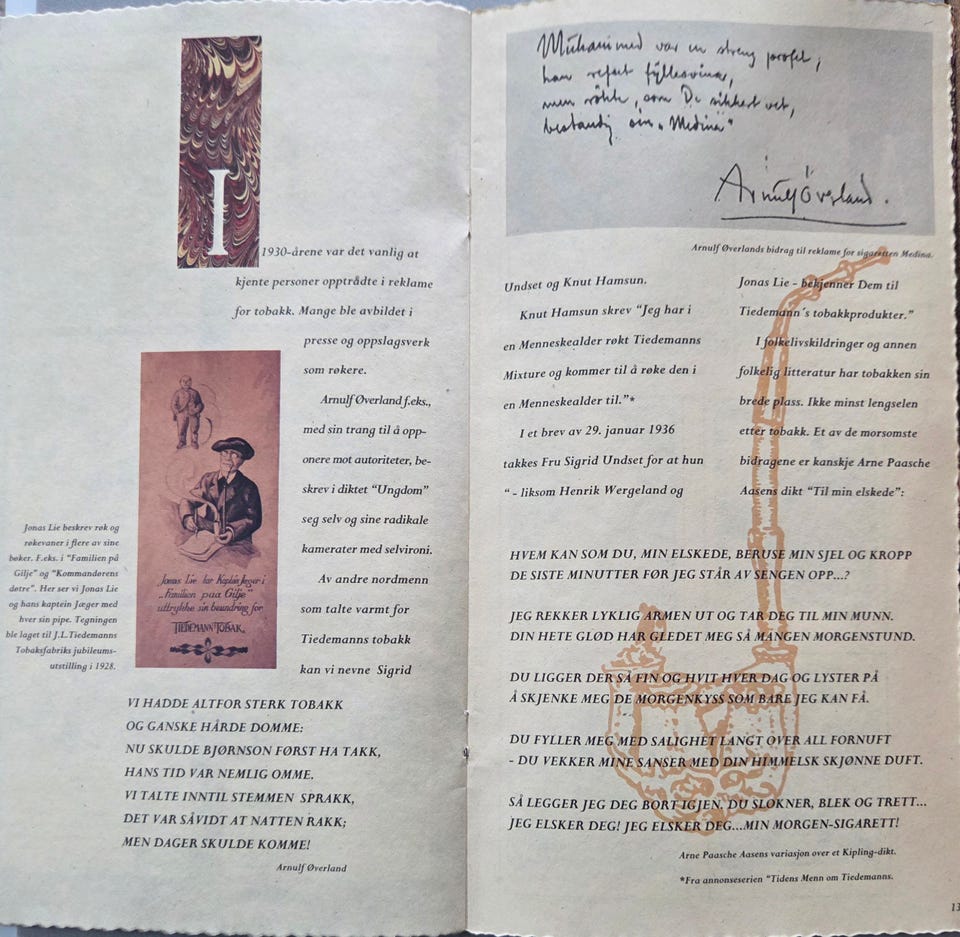 I
1930-årene var det vanlig at
kjente personer opptrådte i reklame
for tobakk. Mange ble avbildet i
presse og oppslagsverk
som røkere.
Arnulf Øverland f.eks.,
med sin trang til å opp-
onere mot autoriteter, be-
skrev i diktet "Ungdom"
seg selv og sine radikale
kamerater med selvironi.
Av andre nordmenn
som talte varmt for
Tiedemanns tobakk
kan vi nevne Sigrid
Jonas Lie beskrev røk og
røkevaner i flere av sine
bøker. F.eks. i "Familien på
Gilje" og "Kommandørens
døtre". Her ser vi Jonas Lie
og hans kaptein Jæger med
hver sin pipe. Tegningen
ble laget til J.L.Tiedemanns
Tobaksfabriks jubileums-
utstilling i 1928.
Jonas Lie lar Kaptein Jæger i
"Familien paa Gilje"
uttrykke sin beundring for
TIEDEMANN TOBAK.
VI HADDE ALTFOR STERK TOBAKK
OG GANSKE HÅRDE DOMME:
NU SKULDE BJØRNSON FØRST HA TAKK,
HANS TID VAR NEMLIG OMME.
VI TALTE INNTIL STEMMEN SPRAKK,
DET VAR SÅVIDT AT NATTEN RAKK;
MEN DAGER SKULDE KOMME!
Arnulf Øverland
Muhammed var en streng profet,
han refset fyllesvina,
men rökte, som De sikkert vet,
bestandig sin "Medina"
Arnulf Överland.
Arnulf Øverlands bidrag til reklame for sigaretten Medina.
Undset og Knut Hamsun.
Knut Hamsun skrev "Jeg har i
en Menneskealder røkt Tiedemanns
Mixture og kommer til å røke den i
en Menneskealder til."*
I et brev av 29. januar 1936
takkes Fru Sigrid Undset for at hun
" - liksom Henrik Wergeland og
Jonas Lie - bekjenner Dem til
Tiedemann´s tobakkprodukter."
I folkelivskildringer og annen
folkelig litteratur har tobakken sin
brede plass. Ikke minst lengselen
etter tobakk. Et av de morsomste
bidragene er kanskje Arne Paasche
Aasens dikt "Til min elskede":
HVEM KAN SOM DU, MIN ELSKEDE, BERUSE MIN SJEL OG KROPP
DE SISTE MINUTTER FØR JEG STÅR AV SENGEN OPP...?
JEG REKKER LYKLIG ARMEN UT OG TAR DEG TIL MIN MUNN.
DIN HETE GLØD HAR GLEDET MEG SÅ MANGEN MORGENSTUND.
DU LIGGER DER SÅ FIN OG HVIT HVER DAG OG LYSTER PÅ
Å SKJENKE MEG DE MORGENKYSS SOM BARE JEG KAN FÅ.
DU FYLLER MEG MED SALIGHET LANGT OVER ALL FORNUFT
- DU VEKKER MINE SANSER MED DIN HIMMELSK SKJØNNE DUFT.
SÅ LEGGER JEG DEG BORT IGJEN. DU SLOKNER, BLEK OG TRETT...
JEG ELSKER DEG! JEG ELSKER DEG...MIN MORGEN-SIGARETT!
Arne Paasche Aasens variasjon over et Kipling-dikt.
*Fra annonseserien "Tidens Menn om Tiedemanns.
13